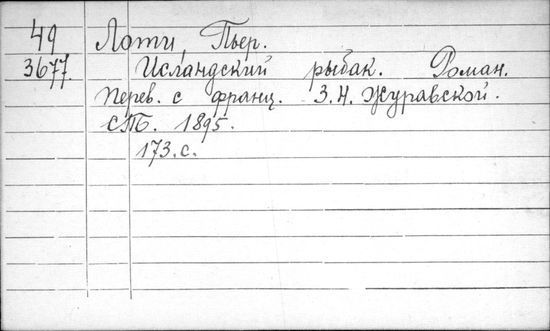 49 Лоти, Пьер.
3677. Исландский рыбак. Роман.
Перев. с франц. З. Н. Журавской.
СПБ. 1895.
173. с.